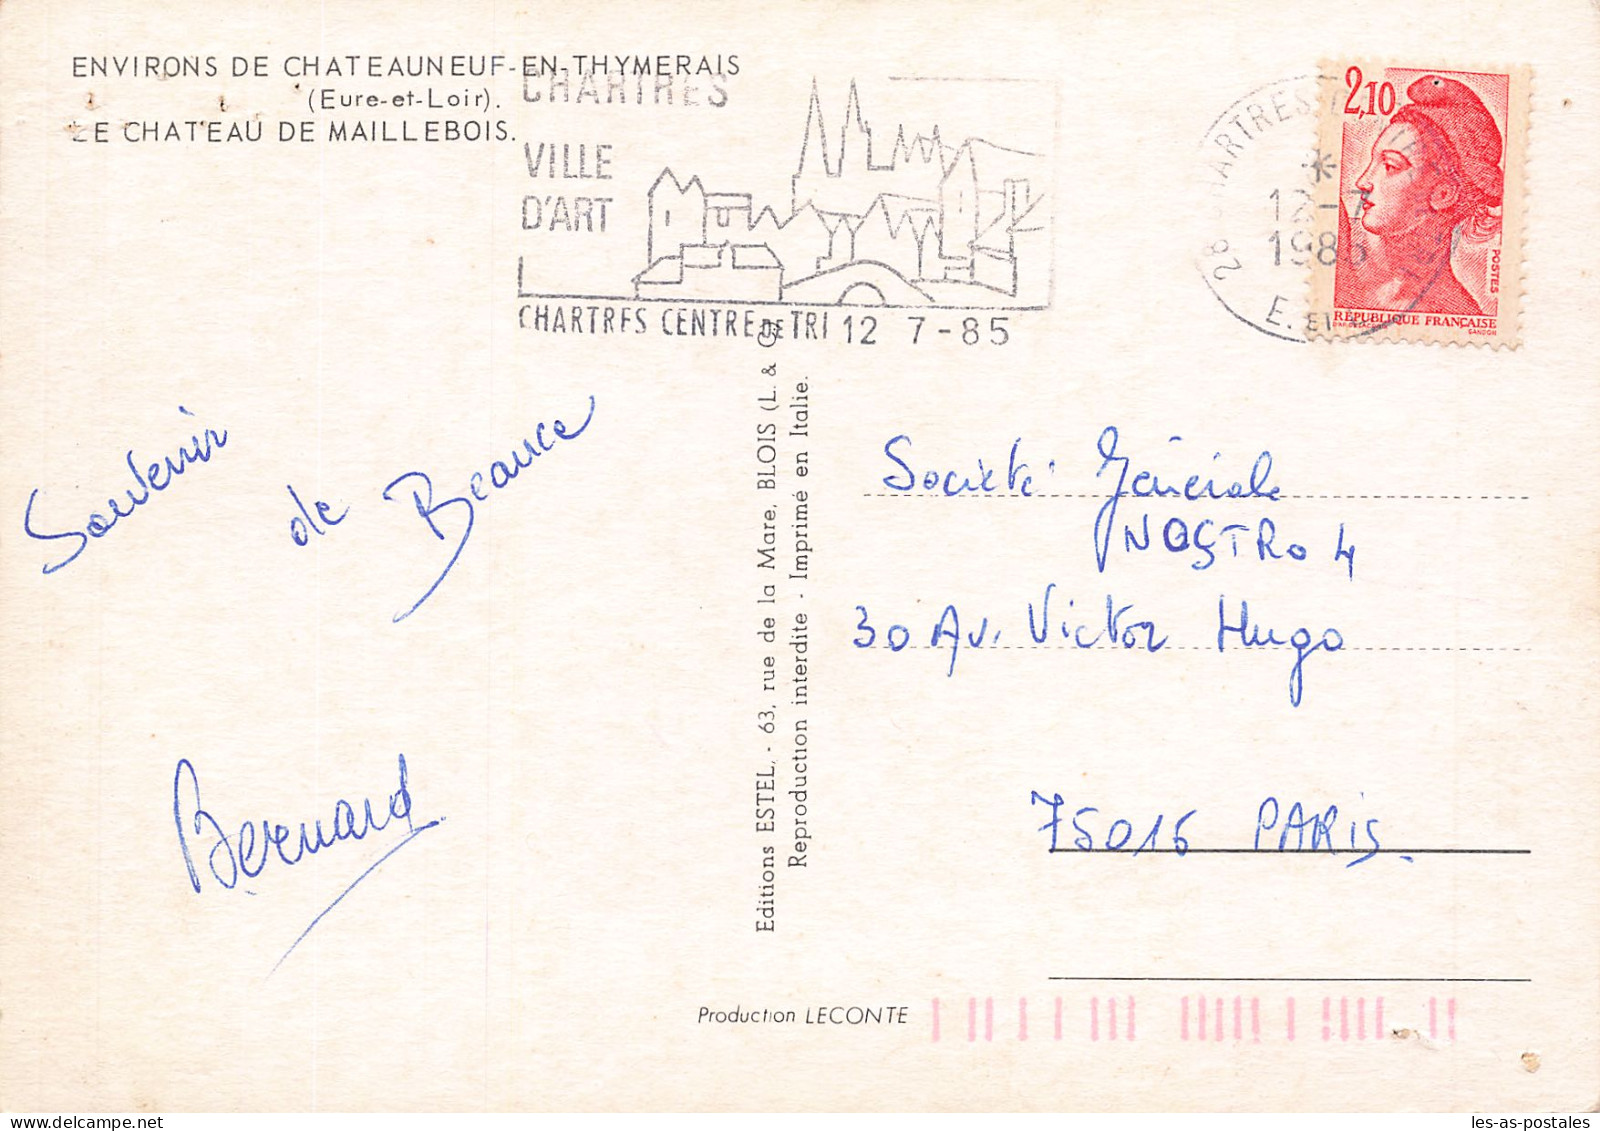 ENVIRONS DE CHATEAUNEUF-EN-THYMERAIS
(Eure-et-Loir).
LE CHATEAU DE MAILLEBOIS.
CHARTRES
VILLE
D'ART
CHARTRES CENTRE DE TRI 12 7-85
28
12-7
1985
E. ET
2,10
POSTES
RÉPUBLIQUE FRANÇAISE
GANDON
Souvenir de Beauce
Bernard
Editions ESTEL, - 63, rue de la Mare, BLOIS (L. &
Reproduction interdite - Imprimé en Italie.
Société Générale
NOSTRO 4
30 Av. Victor Hugo
75016 PARIS.
Production LECONTE
les-as-postales